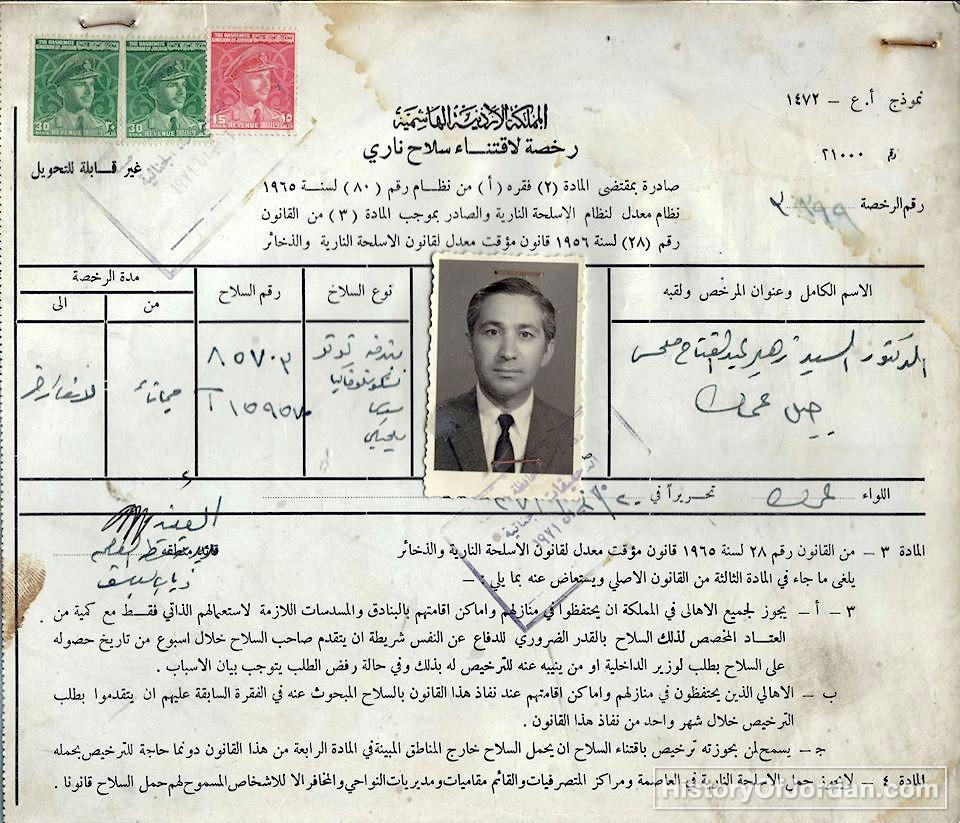 THE HASHEMITE KINGDOM OF JORDAN
30 REVENUE ٣٠
THE HASHEMITE KINGDOM OF JORDAN
30 REVENUE ٣٠
THE HASHEMITE KINGDOM OF JORDAN
15 REVENUE ١٥
نموذج أ.ع – ١٤٧٢
المملكة الأردنية الهاشمية
رخصة لاقتنـــاء سلاح ناري
رقم ٢١٠٠٠
غير قابلة للتحويل
صادرة بمقتضى المادة (٢) فقره (أ) من نظام رقم (٨٠) لسنة ١٩٦٥
نظام معدل لنظام الاسلحة النارية والصادر بموجب المادة (٣) من القانون
رقم (٢٨) لسنة ١٩٥٦ قانون مؤقت معدل لقانون الاسلحة النارية والذخائر
رقم الرخصة
الاسم الكامل وعنوان المرخص ولقبه
نوع السلاح
رقم السلاح
مدة الرخصة
من
الى
الدكتور السيد زهير عبد الفتاح ملحس
جبل عمان
٨٥٧٠٣
١٥٩٥٧٠
اللواء عمان تحريراً في
التحقيقات الجنائية
١٩٧١
المادة ٣ – من القانون رقم ٢٨ لسنة ١٩٦٥ قانون مؤقت معدل لقانون الاسلحة النارية والذخائر
يلغى ما جاء في المادة الثالثة من القانون الاصلي ويستعاض عنه بما يلي : –
٣ – أ – يجوز لجميع الاهالي في المملكة ان يحتفظوا في منازلهم واماكن اقامتهم بالبنادق والمسدسات اللازمة لاستعمالهم الذاتي فقـط مع كمية من
العتـاد المخصص لذلك السلاح بالقدر الضروري للدفاع عن النفس شريطة ان يتقدم صاحب السلاح خلال اسبوع من تاريخ حصوله
على السلاح بطلب لوزير الداخلية او من ينيبه عنه للترخيص له بذلك وفي حالة رفض الطلب يتوجب بيان الاسباب .
ب – الاهالي الذين يحتفظون في منازلهم واماكن إقامتهم عند نفاذ هذا القانون بالسلاح المبحوث عنه في الفقرة السابقة عليهم ان يتقدموا بطلب
الترخيص خلال شهر واحد من نفاذ هذا القانون .
ج – يسمح لمن بحوزته ترخيص باقتناء السلاح ان يحمل السلاح خارج المناطق المبينة في المادة الرابعة من هذا القانون دونما حاجة للترخيص بحمله
المادة ٤ – لايجوز حمل الاسلحة النارية في العاصمة ومراكز المتصرفيات والقائم مقاميات ومديريات النواحي والمخافر الا للاشخاص المسموح لهم حمل السلاح قانونا .
HistoryOfJordan.com